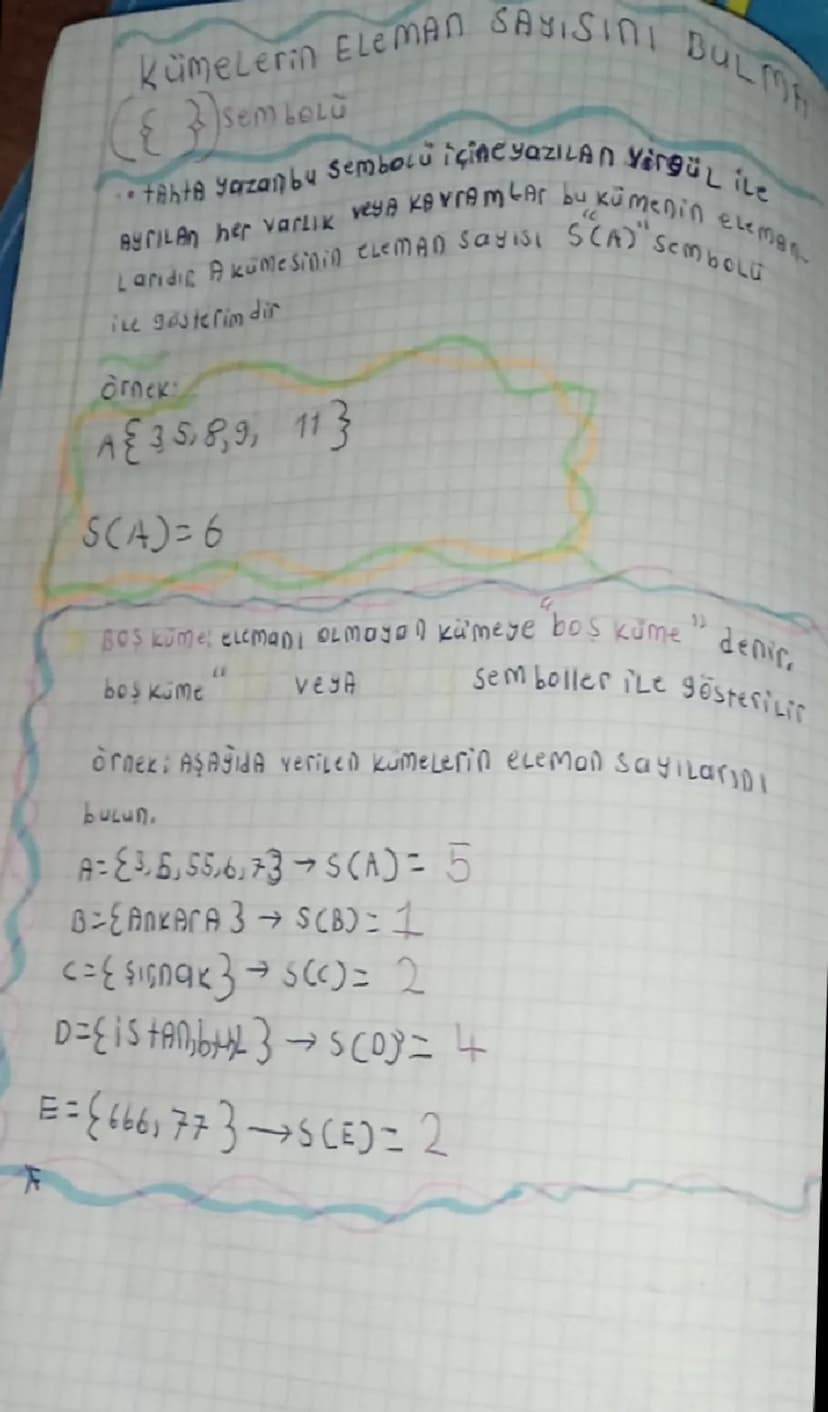 KümeLerin ELeMAn SAYISINI BULMA
({ }) sembolü
• tAhtA yazan bu sembolü içine yazıLAn virgüL iLe
AyrıLAn her varLık veyA KavramLar bu kümenin eLeman-
Larıdır A kümesinin eLeMAn sayısı "S(A)" sembolü
ile gösterimdir
örnek:
A{3,5,8,9, 11}
S(A)=6
Boş küme: elemanı oLmayan kümeye "boş küme" denir.
boş küme " veyA semboller iLe gösteriLir
örnek: AŞAğıdA veriLen kümeLerin eLeman sayıLarını
buLun.
A={3,5,55,6,7} → S(A)= 5
B={AnkArA} → S(B)= 1
C={şırnak} → S(C)= 2
D={istAn,b,u,L} → S(D)= 4
E={666, 77} → S(E)= 2